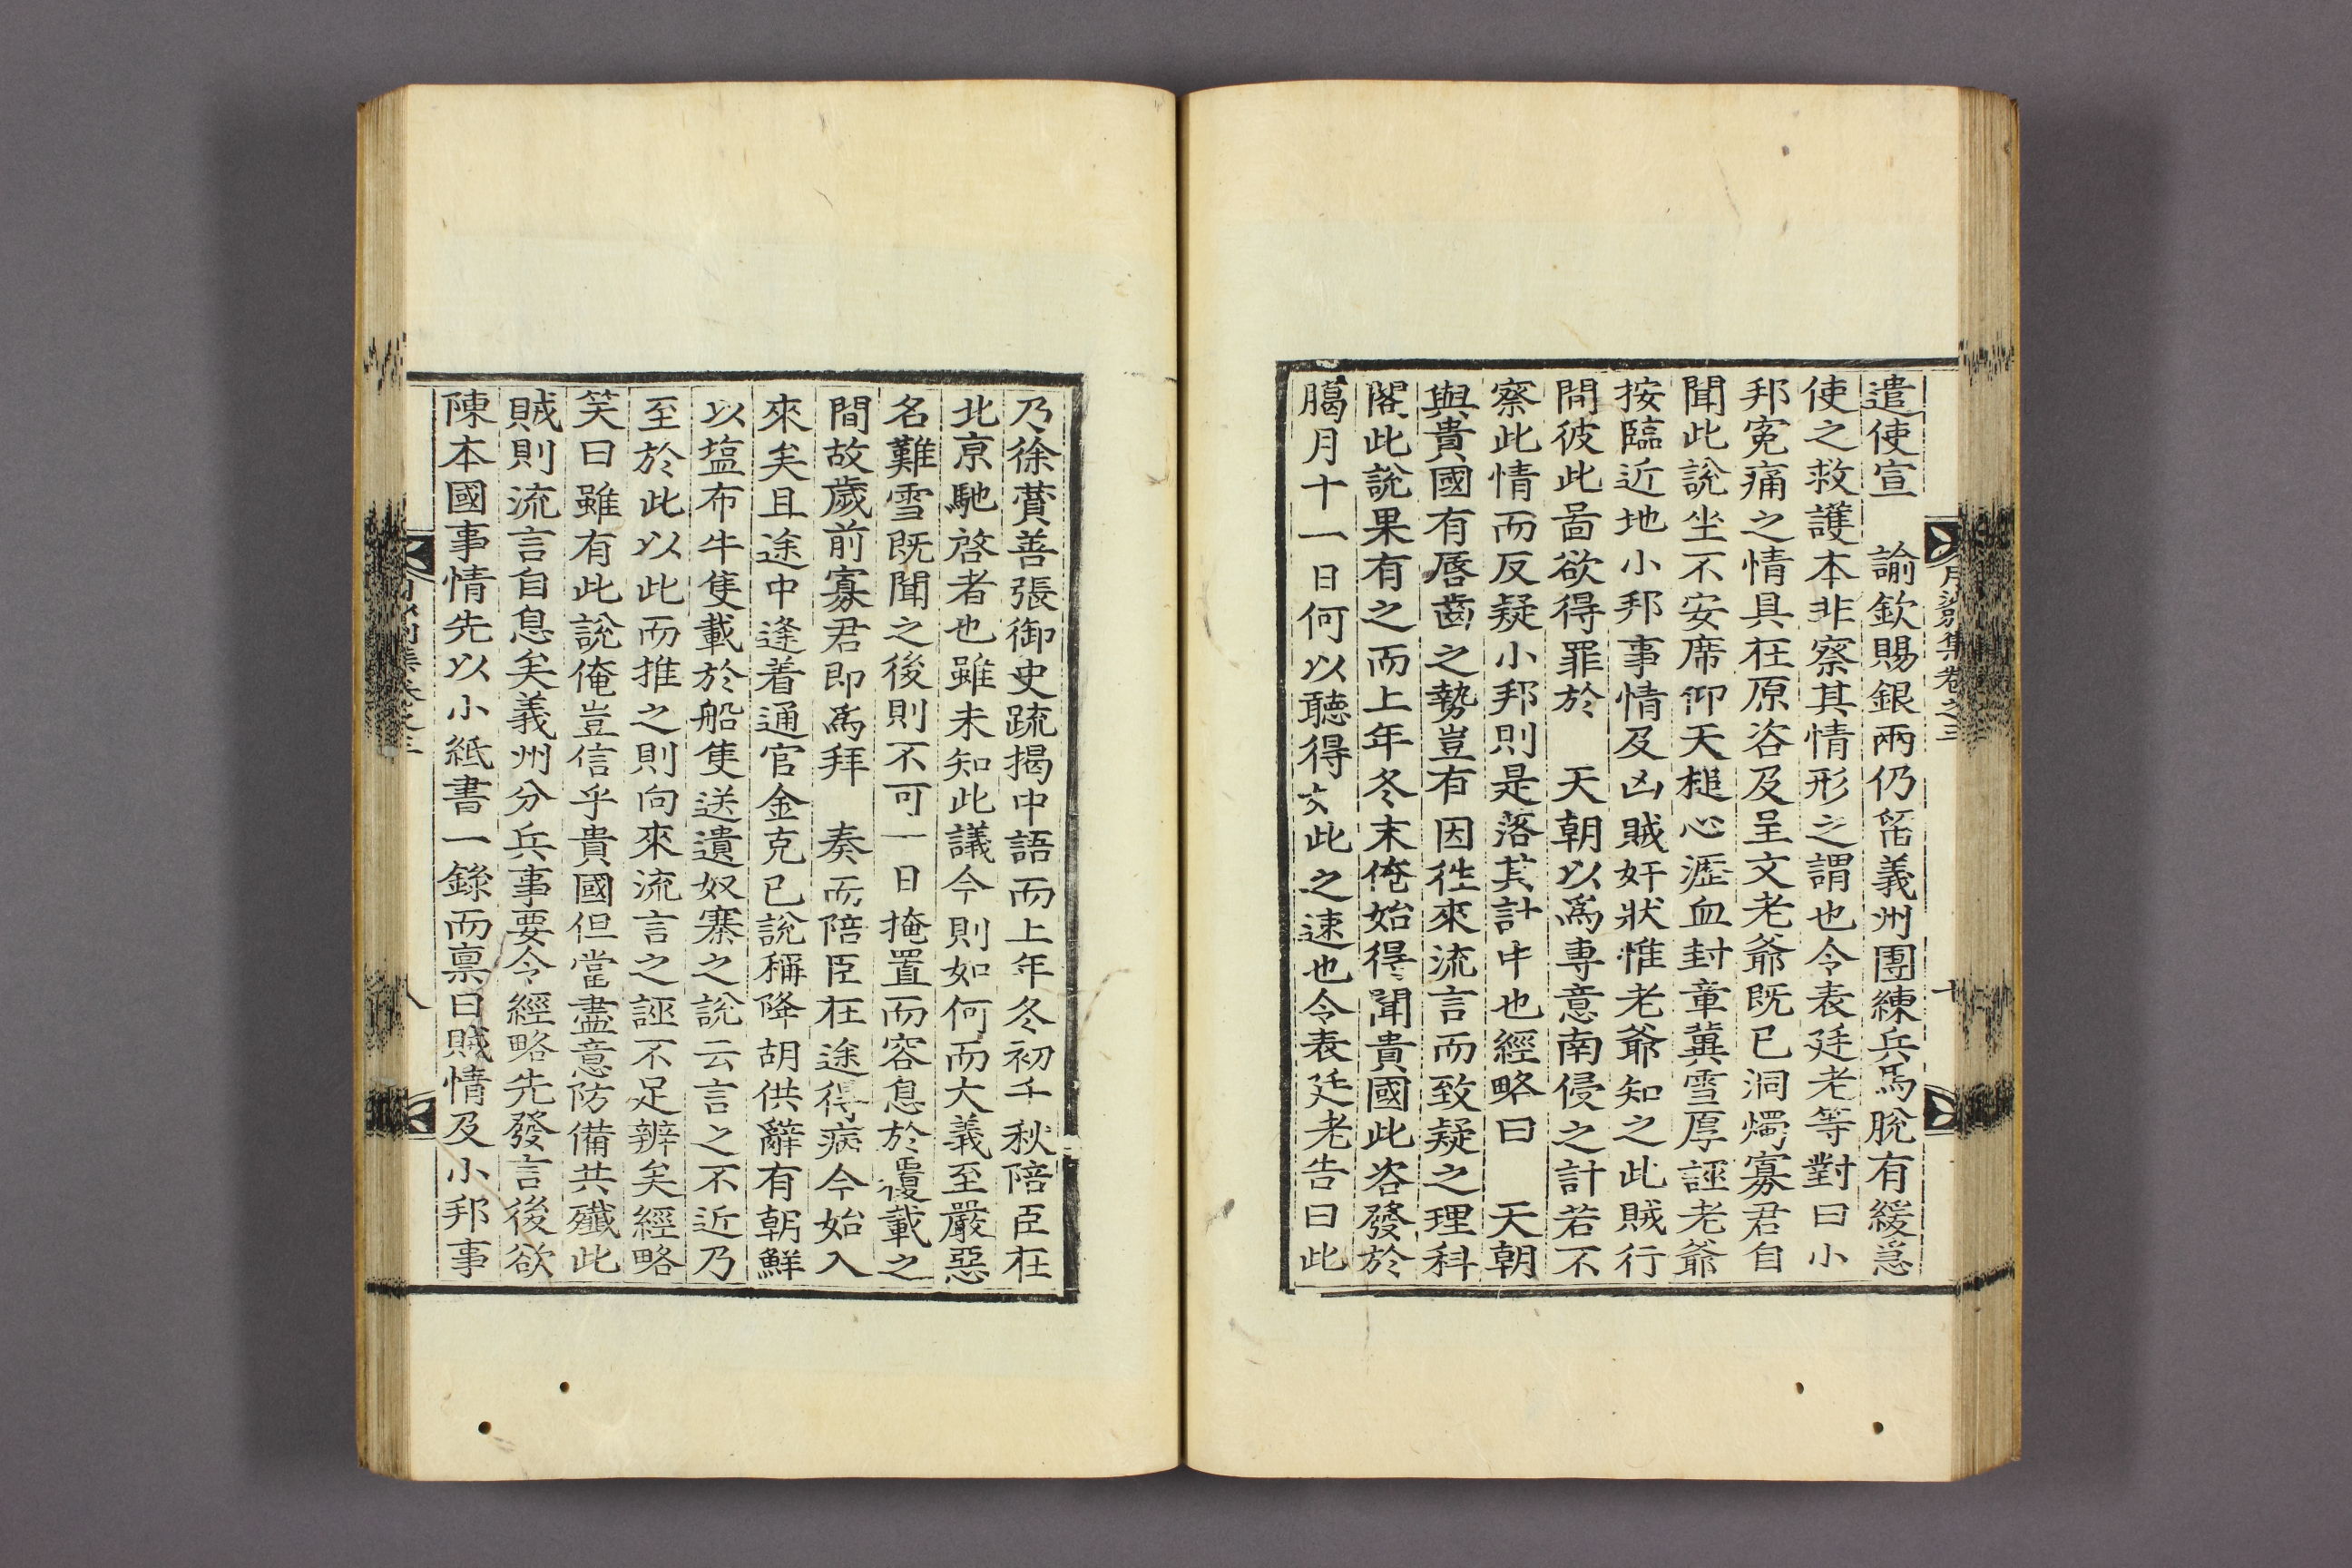 遣使宣　諭欽賜銀兩仍留義州團練兵馬脫有緩急
使之救護本非察其情形之謂也令表廷老等對曰小
邦寃痛之情具在原咨及呈文老爺既已洞燭寡君自
聞此說坐不安席仰天槌心瀝血封章冀雪厚誣老爺
按臨近地小邦事情及凶賊奸狀惟老爺知之此賊行
間彼此啚欲得罪於　天朝以爲專意南侵之計若不
察此情而反疑小邦則是落其計中也經略曰　天朝
與貴國有唇齒之勢豈有因徃來流言而致疑之理科
閣此說果有之而上年冬末俺始得聞貴國此咨發於
臈月十一日何以聽得文此之速也令表廷老告曰此
月沙別集卷之三
乃徐賛善張御史疏揭中語而上年冬初千秋陪臣在
北京馳啓者也雖未知此議今則如何而大義至嚴惡
名難雪既聞之後則不可一日掩置而容息於覆載之
間故歲前寡君即爲拜　奏而陪臣在途得病今始入
來矣且途中逢着通官金克已說稱降胡供辭有朝鮮
以塩布牛隻載於船隻送遺奴寨之說云言之不近乃
至於此以此而推之則向來流言之誣不足辨矣經略
笑曰雖有此說俺豈信乎貴國但當盡意防備共殲此
賊則流言自息矣義州分兵事要令經略先發言後欲
陳本國事情先以小紙書一錄而禀曰賊情及小邦事
八